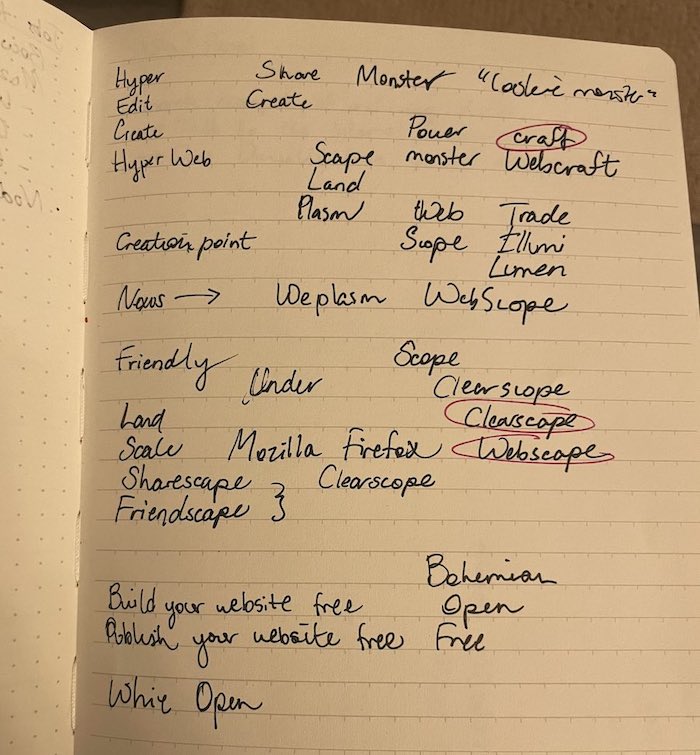 Hyper Share Monster "Cookie monster"
Edit Create
Create Power craft
Hyper Web Scape monster Webcraft
Land
Plasm Web Trade
Creation point Scope Illumi
Lumen
Nows → Weplasm WebScope
Friendly Scope
Under Clearscope
Land Clearscape
Scale Mozilla Firefox Webscape
Sharescape } Clearscope
Friendscape
Bohemian
Build your website free Open
Publish your website free Free
Open